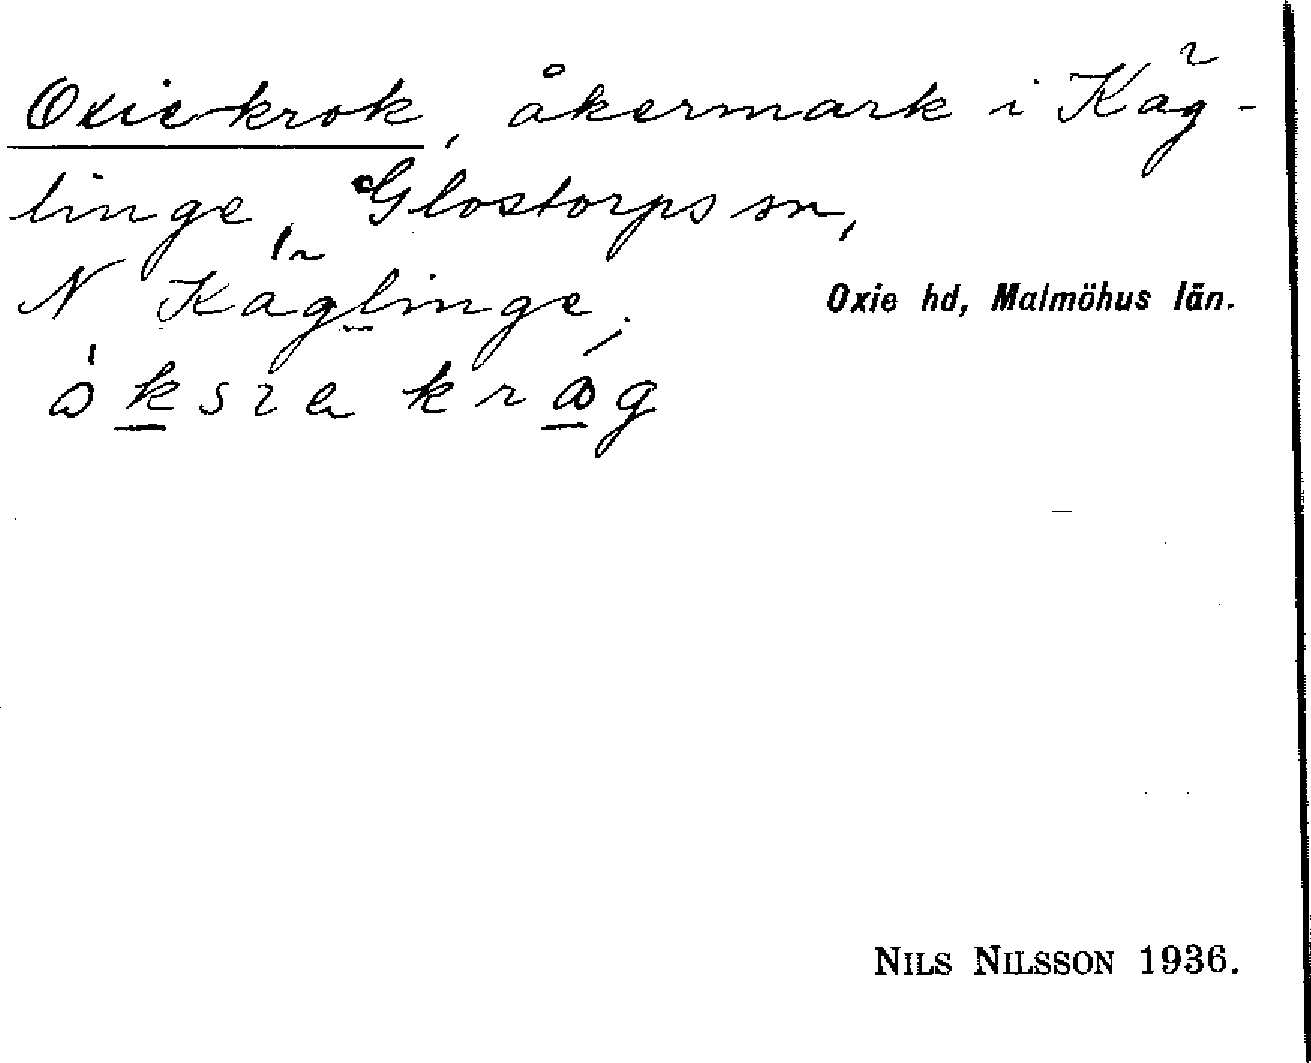 Oxiekrok, åkermark i Käg-
linge, Glostorps sn,
N Käglinge.
Oxie hd, Malmöhus län.
NILS NILSSON 1936.